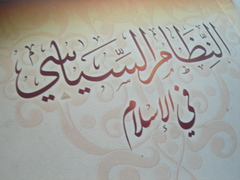 النِّظَامُ السِّيَاسِي
فِي الإِسْلَامِ